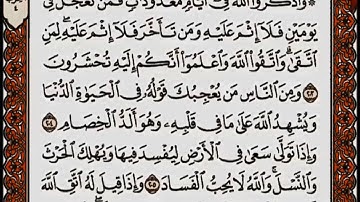 ۞ وَٱذْكُرُوا۟ ٱللَّهَ فِىٓ أَيَّامٍ مَّعْدُودَٰتٍ فَمَن تَعَجَّلَ فِى
يَوْمَيْنِ فَلَآ إِثْمَ عَلَيْهِ وَمَن تَأَخَّرَ فَلَآ إِثْمَ عَلَيْهِ لِمَنِ
ٱتَّقَىٰ وَٱتَّقُوا۟ ٱللَّهَ وَٱعْلَمُوٓا۟ أَنَّكُمْ إِلَيْهِ تُحْشَرُونَ
۝٢٠٣ وَمِنَ ٱلنَّاسِ مَن يُعْجِبُكَ قَوْلُهُۥ فِى ٱلْحَيَوٰةِ ٱلدُّنْيَا
وَيُشْهِدُ ٱللَّهَ عَلَىٰ مَا فِى قَلْبِهِۦ وَهُوَ أَلَدُّ ٱلْخِصَامِ ۝٢٠٤
وَإِذَا تَوَلَّىٰ سَعَىٰ فِى ٱلْأَرْضِ لِيُفْسِدَ فِيهَا وَيُهْلِكَ ٱلْحَرْثَ
وَٱلنَّسْلَ وَٱللَّهُ لَا يُحِبُّ ٱلْفَسَادَ ۝٢٠٥ وَإِذَا قِيلَ لَهُ ٱتَّقِ ٱللَّهَ